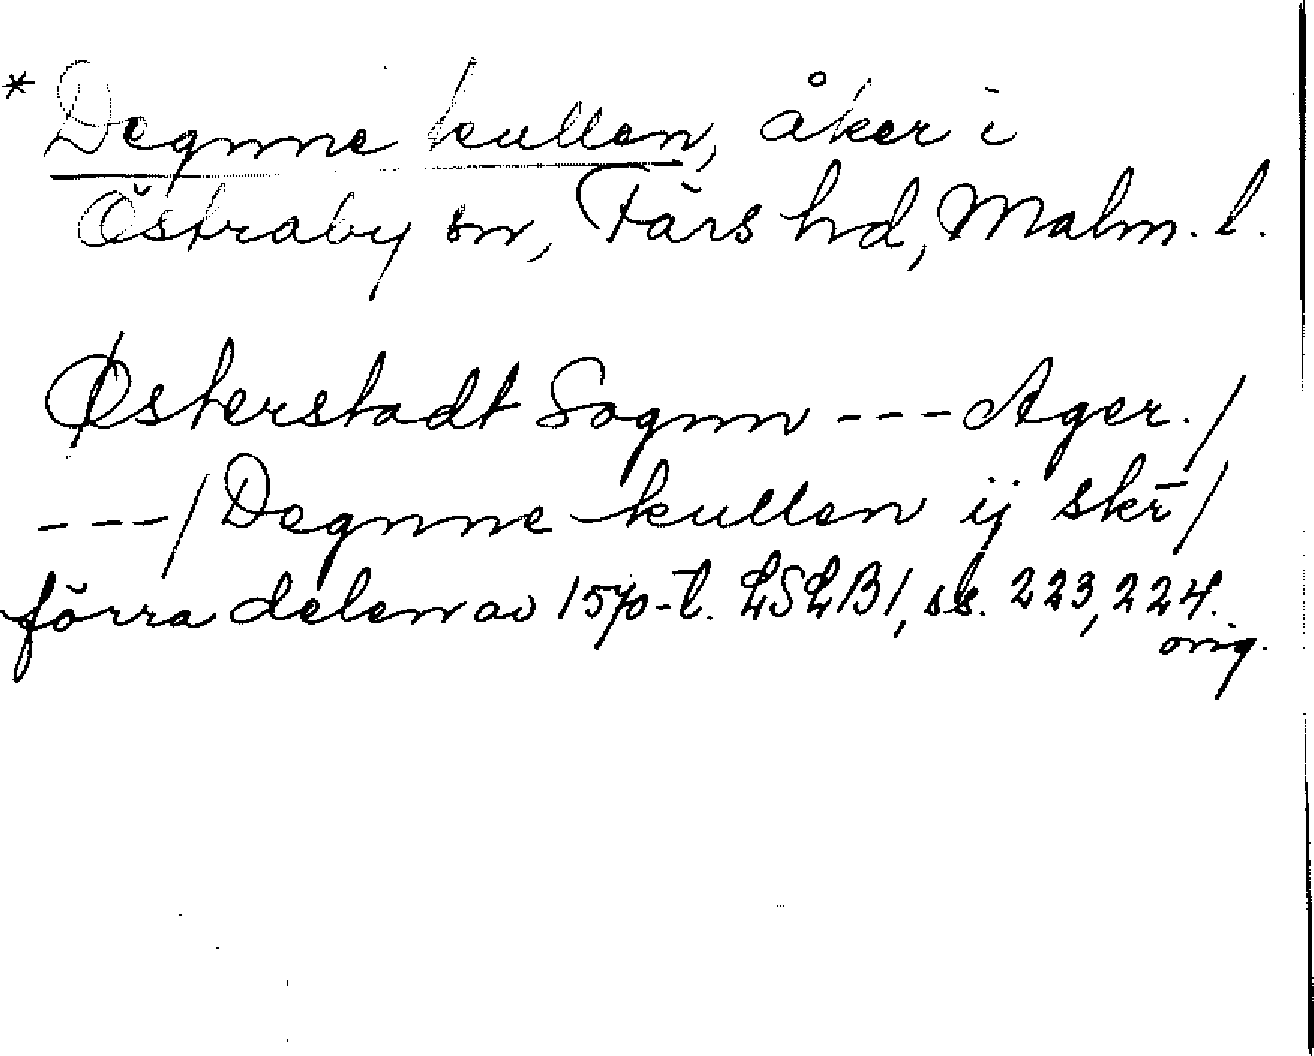 * Degnne kullen, åker i
Östraby sn, Färs hd, Malm. l.
Østerstadt Sognn --- Ager./
---/ Degnne kullen ij skr̄/
förra delen av 1570-t. LSLB1, ss. 223, 224.
orig.